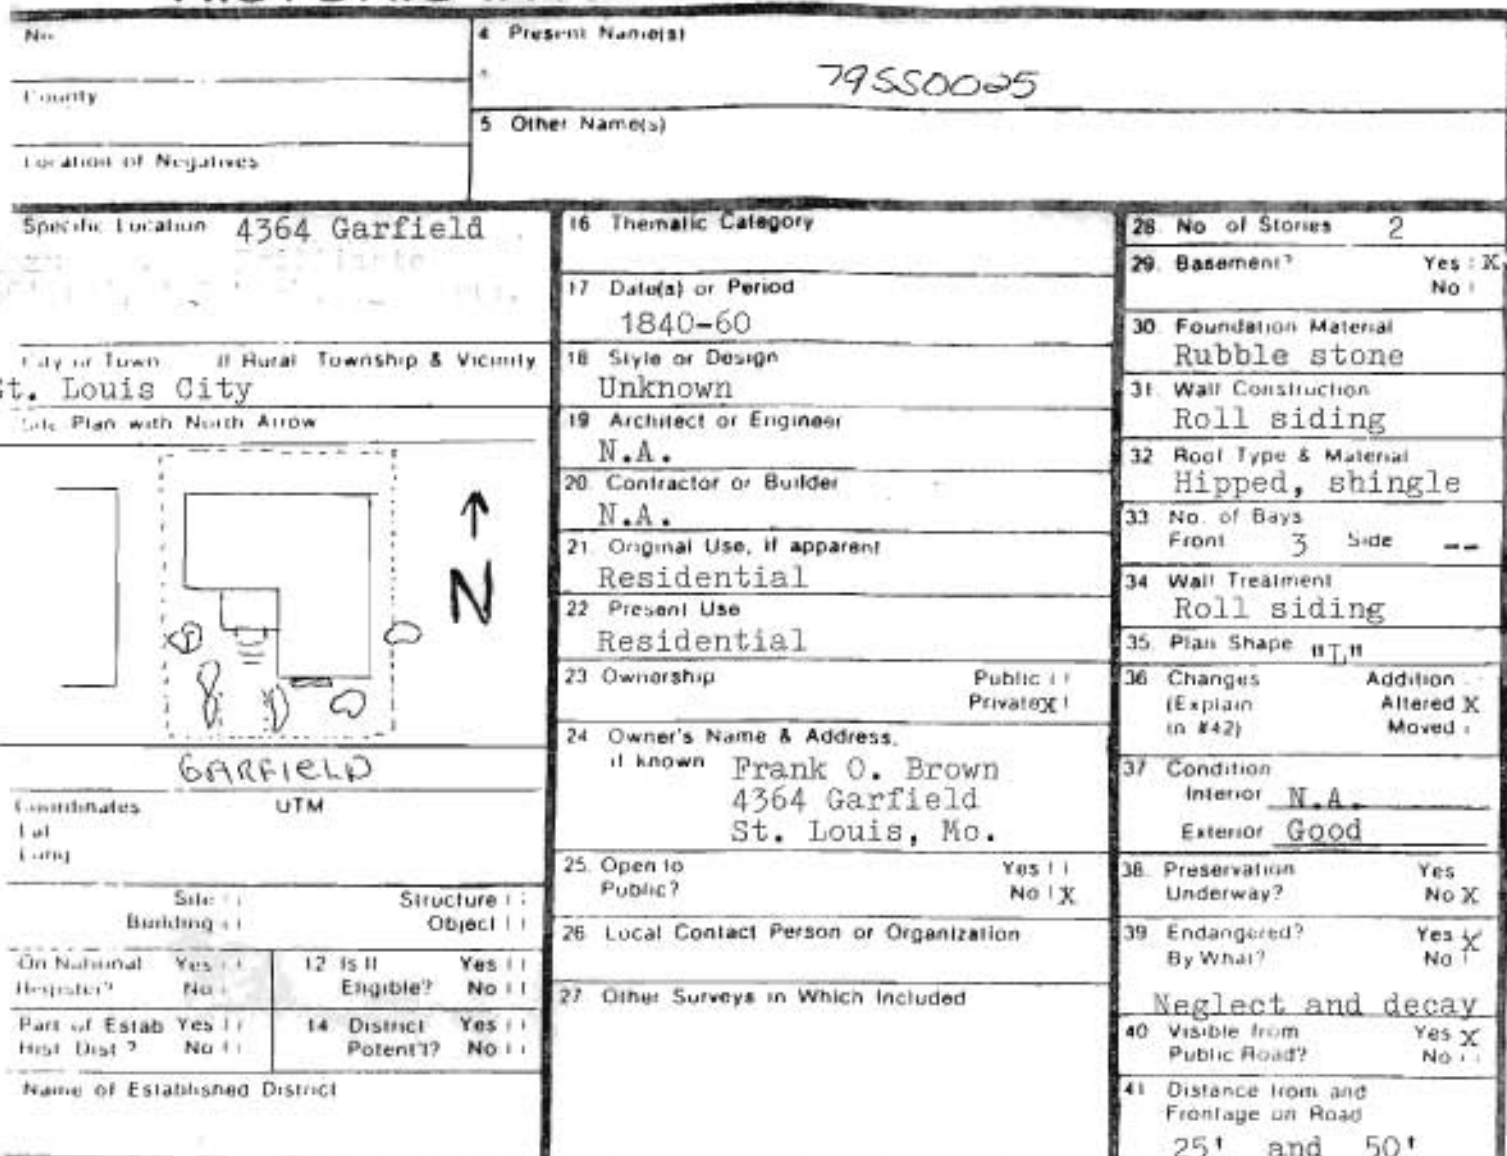 No.
4 Present Name(s)
79SS0025
County
5 Other Name(s)
Location of Negatives
Specific Location 4364 Garfield
City or Town If Rural Township & Vicinity
St. Louis City
Site Plan with North Arrow
N
GARFIELD
Coordinates UTM
Lat
Long
Site ( ) Structure ( )
Building ( ) Object ( )
On National Register? Yes ( ) No ( )
12 Is It Eligible? Yes ( ) No ( )
Part of Estab Hist Dist ? Yes ( ) No ( )
14 District Potent'l? Yes ( ) No ( )
Name of Established District
16 Thematic Category
17 Date(s) or Period
1840-60
18 Style or Design
Unknown
19 Architect or Engineer
N.A.
20. Contractor or Builder
N.A.
21. Original Use, if apparent
Residential
22 Present Use
Residential
23 Ownership Public ( )
Private X )
24 Owner's Name & Address,
if known Frank O. Brown
4364 Garfield
St. Louis, Mo.
25. Open to Yes ( )
Public? No ( X
26 Local Contact Person or Organization
27 Other Surveys in Which Included
28. No of Stories 2
29. Basement? Yes ( X
No (
30 Foundation Material
Rubble stone
31. Wall Construction
Roll siding
32 Roof Type & Material
Hipped, shingle
33 No. of Bays
Front 3 Side --
34 Wall Treatment
Roll siding
35. Plan Shape "L"
36 Changes Addition
(Explain Altered X
in #42) Moved (
37 Condition
Interior N.A.
Exterior Good
38. Preservation Yes
Underway? No X
39 Endangered? Yes X
By What? No (
Neglect and decay
40 Visible from Yes X
Public Road? No ( )
41 Distance from and
Frontage on Road
25' and 50'